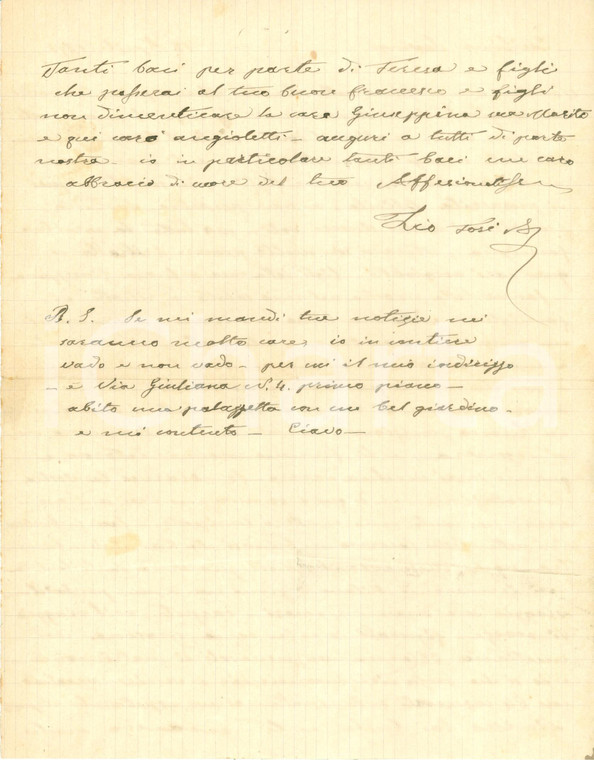 Tanti baci per parte di Teresa e figli
che passerai al tuo buon Francesco e figli
non dimenticare la cara Giuseppina suo Marito
e qui cari angioletti - auguri a tutti di parte
nostra - io in particolare tanti baci un caro
abbracio di cuore del tuo
Zio Tosi
P. S. Se mi mandi tue notizie mi
saranno molto care, io in cantine
vado e non vado - per mi il mio indirizzo
- è Via Giuliana N. 4. primo piano -
abito una palazzetta con un bel giardino -
e mi contento - Ciavo -